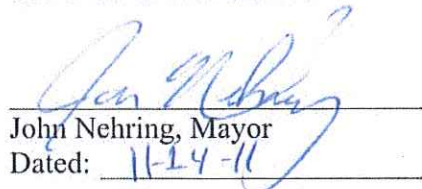 Jon Nehring
John Nehring, Mayor
Dated: 11-14-11